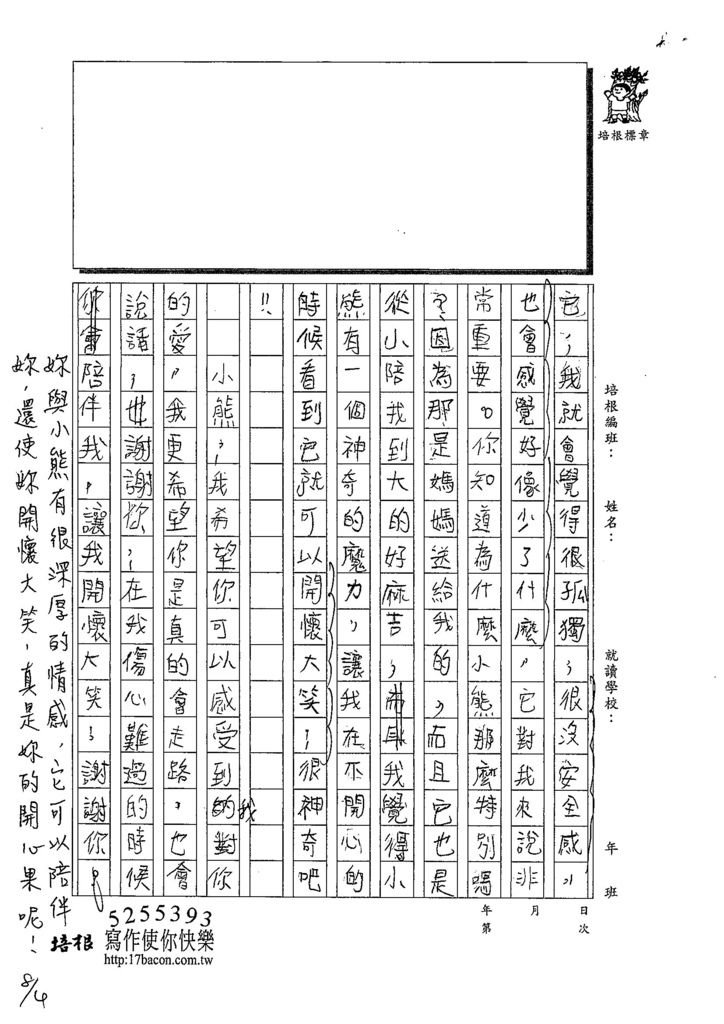 培根標章
培根編班：
姓名：
就讀學校：
年 班
日 月 年
次 第
它，我就會覺得很孤獨，很沒安全感，
也會感覺好像少了什麼。它對我來說非
常重要。你知道為什麼小熊那麼特別嗎
？因為那是媽媽送給我的，而且它也是
從小陪我到大的好麻吉，我覺得小
熊有一個神奇的魔力，讓我在不開心的
時候看到它就可以開懷大笑，很神奇吧
！！
小熊，我希望你可以感受到我對你
的愛。我更希望你是真的會走路，也會
說話，謝謝你，在我傷心難過的時候
你會陪伴我，讓我開懷大笑，謝謝你。
妳與小熊有很深厚的情感，它可以陪伴
妳，還使妳開懷大笑，真是妳的開心果呢！
8/4
5255393
培根 寫作使你快樂
http:17bacon.com.tw